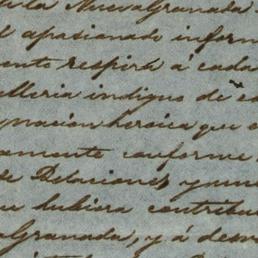 la Nueva Granada
el apasionado inform
ente respira á cada
elleria indigno de
gnacion heroica que
amente conforme
de Relaciones y
hubiera contribu
Granada, y á desva